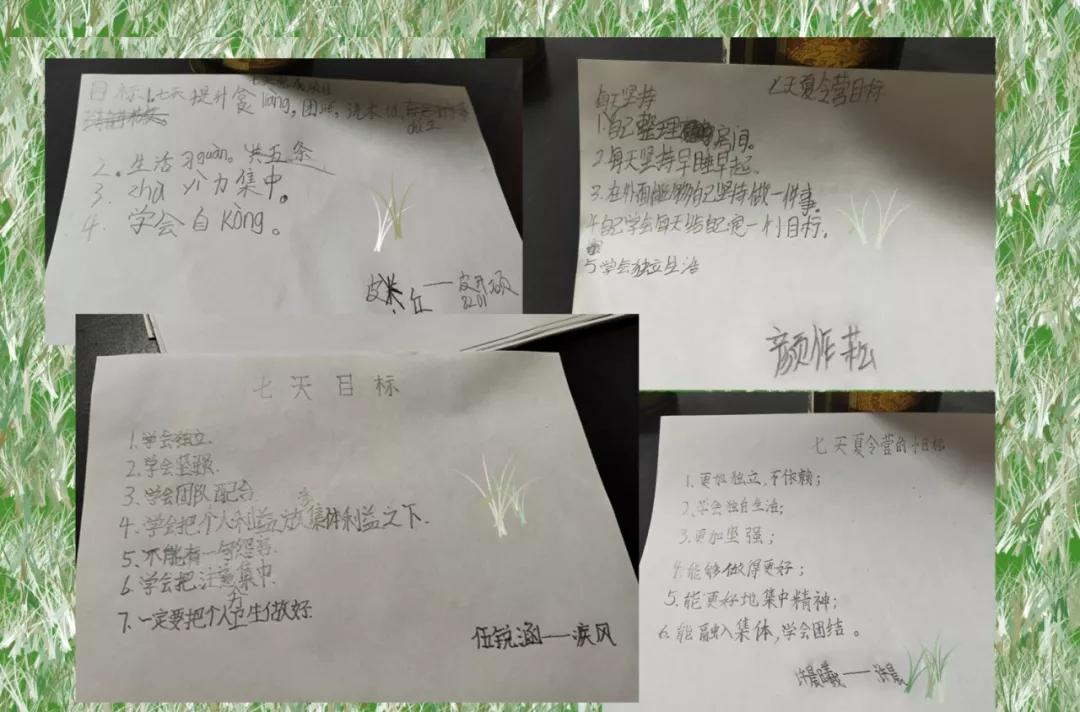 七天
目标1.七天提升食liàng,团
2.生活习guàn。共五条
3.zhù yì力集中。
4.学会自kòng。
七天夏令营目标
每天坚持
1.自己整理房间。
2.每天坚持早睡早起。
3.在外面能够自己坚持做一件事。
4.自己学会每天给自己定一个目标。
5.学会独立生活
颜作松
七天目标
1.学会独立.
2.学会坚强.
3.学会团队配合
4.学会把个人利益放在集体利益之下.
5.不能有一句怨言.
6.学会把注意力集中.
7.一定要把个人卫生做好.
伍锐涵——疾风
七天夏令营的小目标
1.更加独立,不依赖;
2.学会独自生活;
3.更加坚强;
4.能够做得更好;
5.能更好地集中精神;
6.能融入集体,学会团结。
许晨曦——